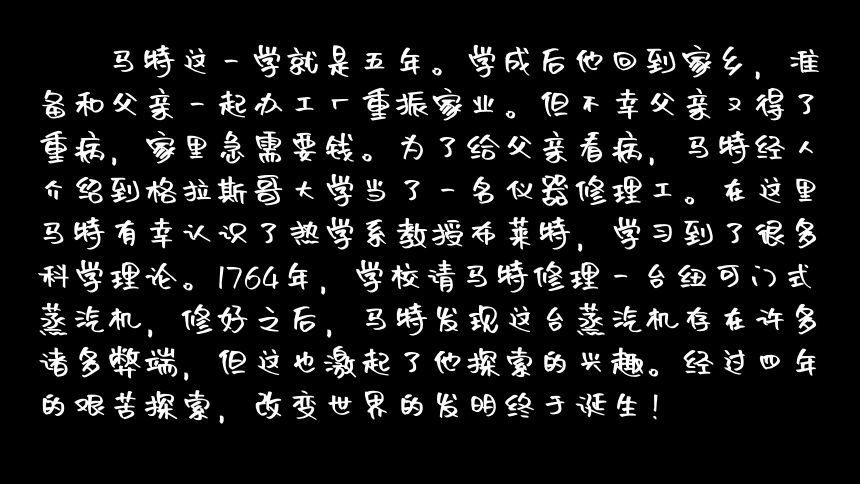 马特这一学就是五年。学成后他回到家乡，准
备和父亲一起办工厂重振家业。但不幸父亲又得了
重病，家里急需要钱。为了给父亲看病，马特经人
介绍到格拉斯哥大学当了一名仪器修理工。在这里
马特有幸认识了热学系教授布莱特，学习到了很多
科学理论。1764年，学校请马特修理一台纽可门式
蒸汽机，修好之后，马特发现这台蒸汽机存在许多
诸多弊端，但这也激起了他探索的兴趣。经过四年
的艰苦探索，改变世界的发明终于诞生！